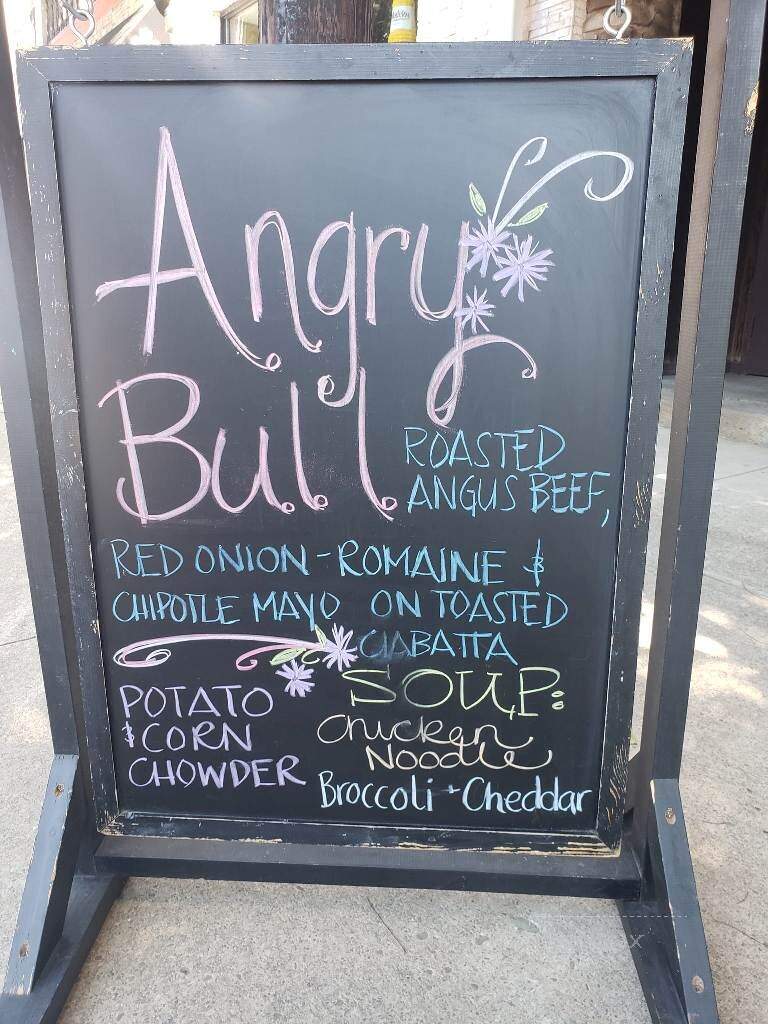 Angry
Bull
ROASTED
ANGUS BEEF,
RED ONION - ROMAINE &
CHIPOTLE MAYO ON TOASTED
CIABATTA
SOUP:
POTATO
& CORN
CHOWDER
Chicken
Noodle
Broccoli + Cheddar